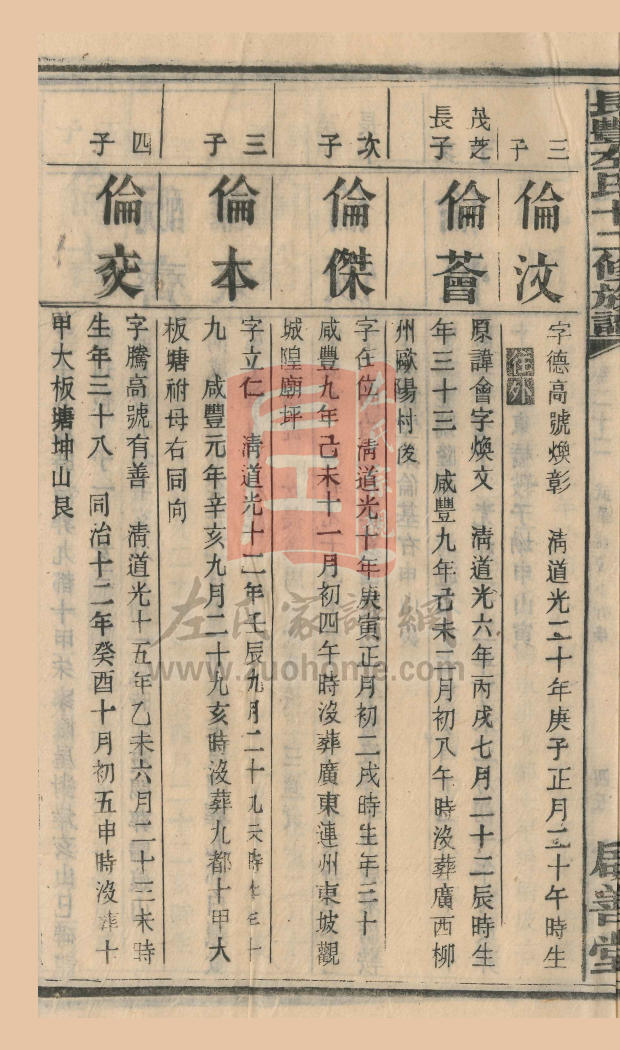 長豐左氏十二修族譜
居善堂
三子
倫汶
字德高號煥彰 清道光二十年庚子正月二十午時生
往外
茂芝長子
倫薈
原諱會字煥文 清道光六年丙戌七月二十二辰時生
年三十三 咸豐九年己未二月初八午時沒葬廣西柳
州歐陽村後
次子
倫傑
字在位 清道光十年庚寅正月初二戌時生年三十
咸豐九年己未十一月初四午時沒葬廣東連州東坡觀
城隍廟坪
三子
倫本
字立仁 清道光十二年壬辰九月二十九未時生年十
九 咸豐元年辛亥九月二十九亥時沒葬九都十甲大
板塘祔母右同向
四子
倫交
字騰高號有善 清道光十五年乙未六月二十三未時
生年三十八 同治十二年癸酉十月初五申時沒葬十
甲大板塘坤山艮
左氏家譜網
www.zuohome.com